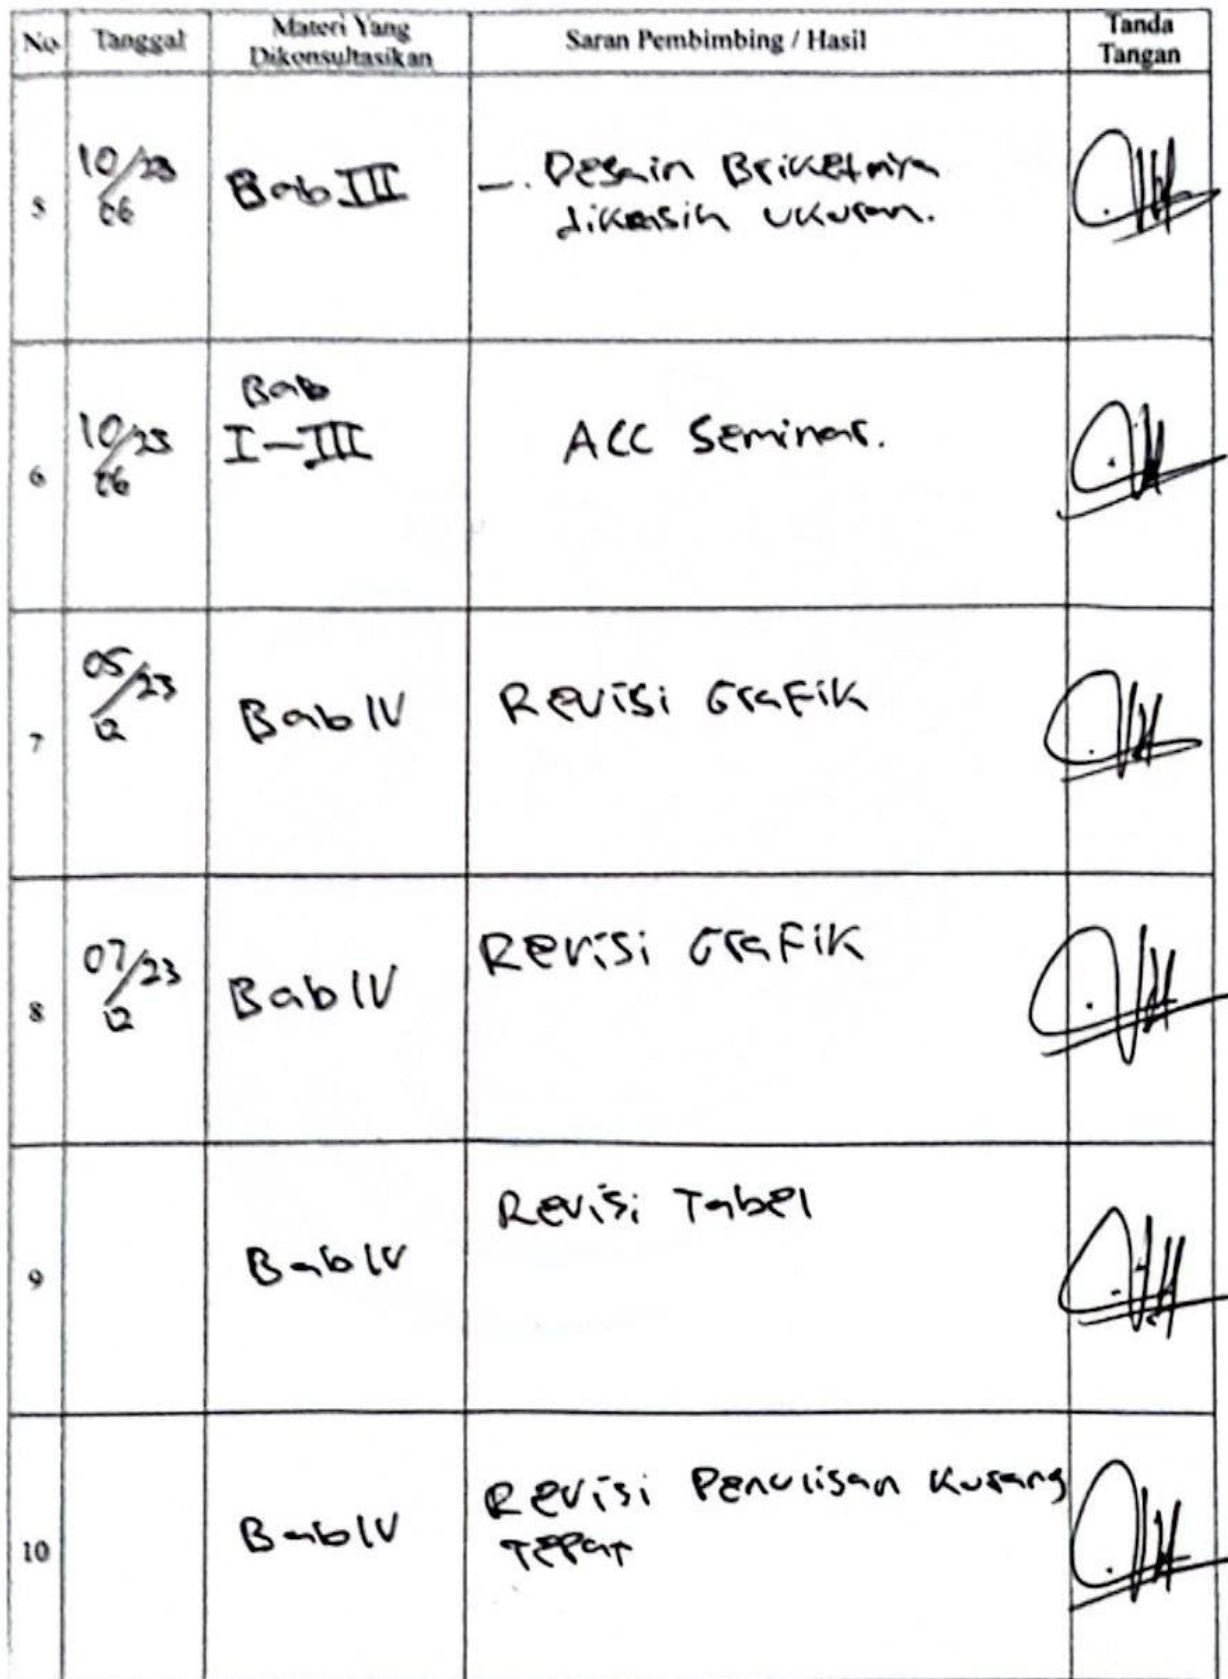 No Tanggal Materi Yang Dikonsultasikan Saran Pembimbing / Hasil Tanda Tangan
5 10/23 06 Bab III -. Desain Briketnya
dikasih ukuran.
6 10/23 06 Bab
I-III ACC Seminar.
7 05/23 12 Bab IV Revisi Grafik
8 07/23 12 Bab IV Revisi Grafik
9 Bab IV Revisi Tabel
10 Bab IV Revisi Penulisan Kurang
Tepat